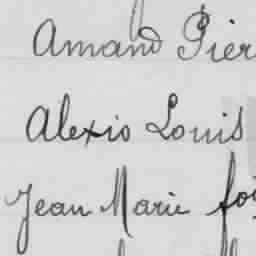 Amand Pier
Alexis Louis
Jean Marie